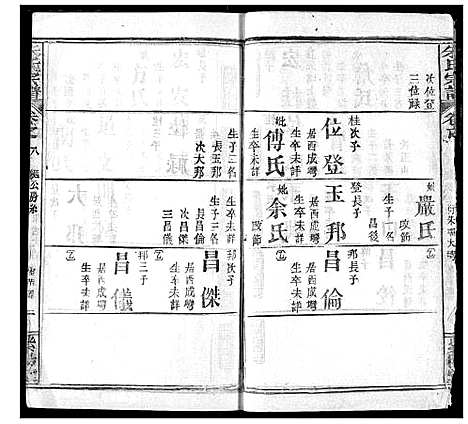 朱氏宗譜
次位登
三位錄
桂次子
位登
居西成灣
生卒未詳
妣
傅氏
生卒未詳
生子二名
長玉邦
次大邦
妣
嚴氏
改節
生子一名
昌後
登長子
玉邦
居西成灣
生卒未詳
妣
余氏
改節
生卒未詳
生子三名
長昌倫
次昌傑
三昌儀
邦長子
昌倫
居西成灣
生卒未詳
邦次子
昌傑
居西成灣
生卒未詳
邦三子
昌儀
生卒未詳
朱氏宗譜
卷之八